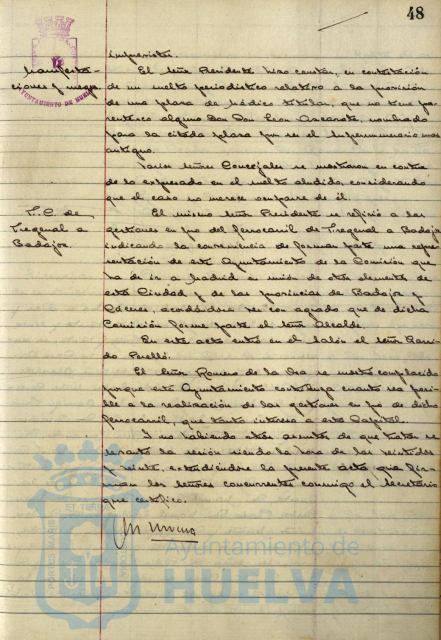 48
imprevistos.
Manifesta-
ciones y ruegos.
AYUNTAMIENTO DE HUELVA
El Señor Presidente hizo constar, en contestación
de un suelto periodístico relativo a la provisión
de una plaza de Médico titular, que no tiene pa-
rentesco alguno con Don Leon Azcarate, nombrado
para la citada plaza por ser el Supernumerario mas
antiguo.
Varios Señores Concejales se mostraron en contra
de lo expresado en el suelto aludido, considerando
que el caso no merece ocuparse de él.
F.C. de
Fregenal a
Badajoz.
El mismo Señor Presidente se refirió a las
gestiones en pro del ferrocarril de Fregenal a Badajoz
indicando la conveniencia de formar parte una repre-
sentación de este Ayuntamiento de la Comisión que
ha de ir a Madrid en unión de otros elementos de
esta Ciudad y de las provincias de Badajoz y
Cáceres, acordándose ver con agrado que de dicha
Comisión forme parte el Señor Alcalde.
En este acto entró en el Salón el Señor Garri-
do Perelló.
El Señor Romero de la Osa se mostró complacido
porque este Ayuntamiento contribuya cuanto sea posi-
ble a la realización de las gestiones en pro de dicho
ferrocarril, que tanto interesa a esta Capital.
Y no habiendo otros asuntos de que tratar se
levantó la sesión siendo la hora de las veintidos
y veinte, extendiéndose la presente acta que fir-
man los Señores concurrentes conmigo el Secretario
que certifico.
Ayuntamiento de
HUELVA